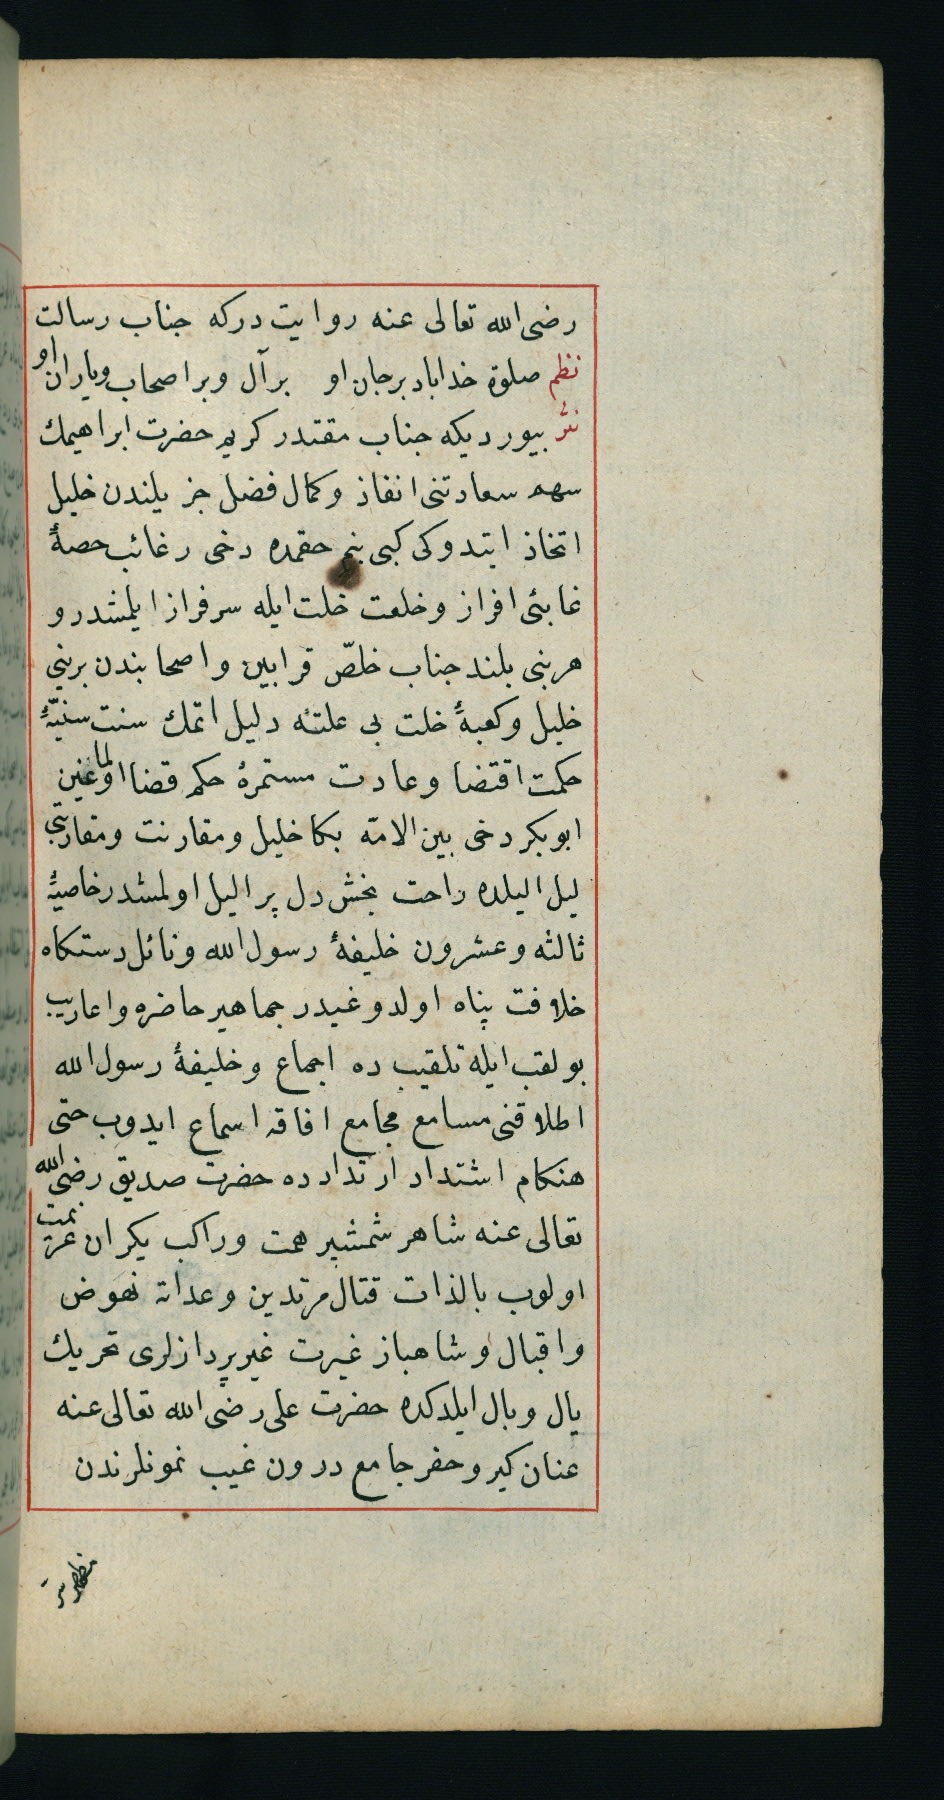 رضی الله تعالی عنه روایت در که جناب رسالت
نظم صلوة خداباد بر جان او بر آل و بر اصحاب و یاران او
نثر بیوردیکه جناب مقتدر کریم حضرت ابراهیمك
سهم سعادتنی انفاذ و کمال فضل جزیلندن خلیل
اتخاذ ایتدوکی کبی بنم حقمده دخی رغائب حصهٔ
غائبئی افراز و خلعت خلت ایله سرفراز ایلمشدر و
هر بنی بلند جناب خلّص قرابین و اصحابندن برینی
خلیل و کعبهٔ خلت بی علتنه دلیل اتمك سنت سنیّهٔ
حکمت اقتضا و عادت مستمرهٔ حکم قضا اولماغین
ابو بکر دخی بین الامّه بکا خلیل و مقارنت و مقاربتی
لیل الیلده راحت بخش دل پر الیل اولمشدر خاصیهٔ
ثالثه و عشرون خلیفهٔ رسول الله و نائل دستکاه
خلافت پناه اولدوغیدر جماهیر حاضره و اعاریب
بو لقب ایله تلقیب ده اجماع و خلیفهٔ رسول الله
اطلاقنی مسامع مجامع افاقه اسماع ایدوب حتی
هنکام اشتداد ارتداد ده حضرت صدیق رضی الله
تعالی عنه شاهر شمشیر همت و راکب یکران عزیمت
اولوب بالذات قتال مرتدین و عداته نهوض
و اقبال و شاهباز غیرت غیر پردازلری تحریك
یال و بال ایلدکده حضرت علی رضی الله تعالی عنه
عنان کیر و حفر جامع درون غیب نمونلرندن
مظهر سر